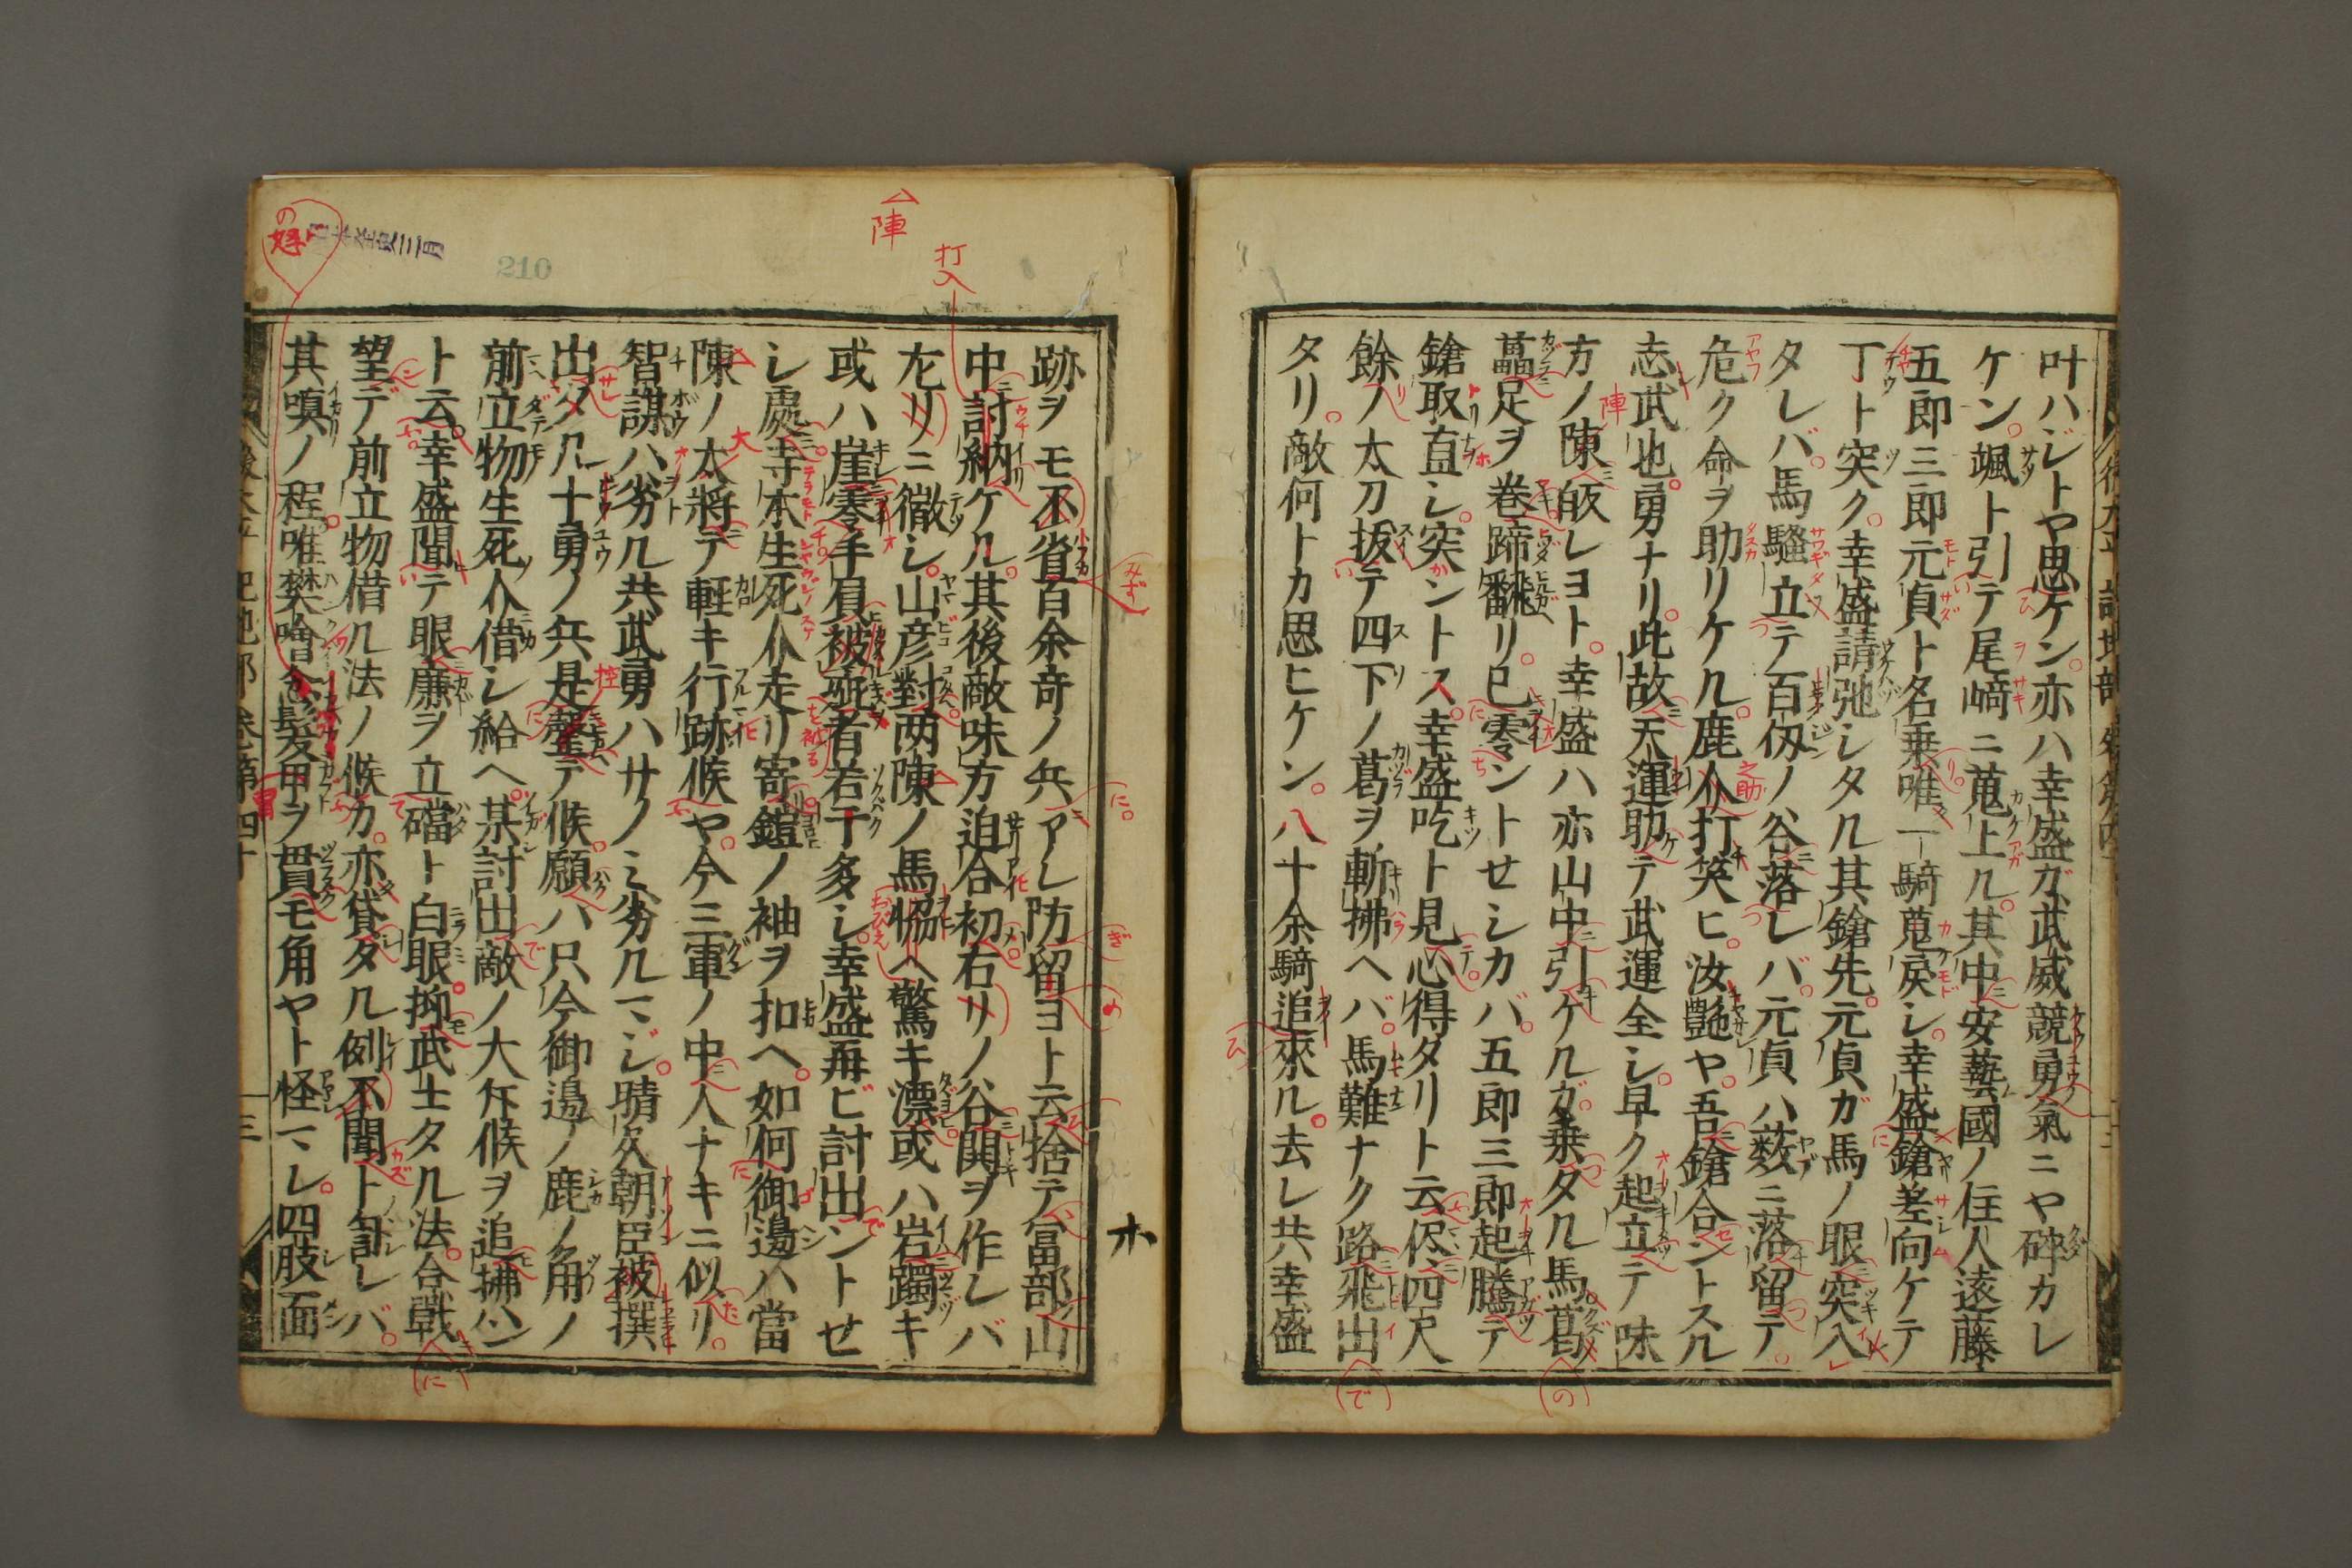 叶ハジトヤ思ケン。亦ハ幸盛ガ武威競勇氣ニヤ碎カレ
ケン。颯ト引テ尾﨑ニ蒐上ル。其中安藝國ノ住人遠藤
五郎三郎元貞ト名乗唯一騎蒐戻シ。幸盛鎗差向ケテ
丁ト突ク。幸盛請弛シタル其鎗先。元貞ガ馬ノ眼突入
タレバ。馬騒立テ百仭ノ谷落レバ。元貞ハ薮ニ落留テ。
危ク命ヲ助リケル。鹿介打笑ヒ。汝艶ヤ。吾鎗合ントスル
志武也。勇ナリ。此故天運助テ武運全シ。早ク起立テ味
方ノ陳皈レヨト。幸盛ハ亦山中引ケルガ。乗タル馬葛
藟足ヲ巻蹄飜リ。已零ントセシカバ。五郎三郎起騰テ
鎗取直シ。突ントス。幸盛吃ト見心得タリト云侭四尺
餘ノ太刀抜テ四下ノ葛ヲ斬拂ヘバ。馬難ナク路飛出
タリ。敵何トカ思ヒケン。八十余騎追來ル。去レ共幸盛
跡ヲモ不省百余竒ノ兵アレ防留ヨト云捨テ冨部山
中討納ケル。其後敵味方迫合初右リノ谷鬨ヲ作レバ
左リニ徹シ。山彦對両陳ノ馬恊ヘ驚キ漂。或ハ岩躅キ
或ハ崖零手負被疵者若干多シ。幸盛再ビ討出ントセ
シ處寺本生死介走リ寄鎧ノ袖ヲ扣ヘ。如何御邊ハ當
陳ノ太將テ軽キ行跡候ヤ。今三軍ノ中人ナキニ似リ。
智謀ハ劣ル共武勇ハサノミ劣ルマジ。晴久朝臣被撰
出タル十勇ノ兵是罄テ候。願ハ只今御邊ノ鹿ノ角ノ
前立物生死介借シ給ヘ。某討出敵ノ大斥候ヲ追拂ハン
ト云。幸盛聞テ眼廉ヲ立礑ト白眼。抑武士タル法。合戰
望デ前立物借ル法ノ候カ。亦貸タル例不聞ト訇レバ。
其嗔ノ程。唯樊噲怒髪甲ヲ貫モ角ヤト怪マレ。四肢面
後太平記地部卷第四十
十三
210
陣
打入